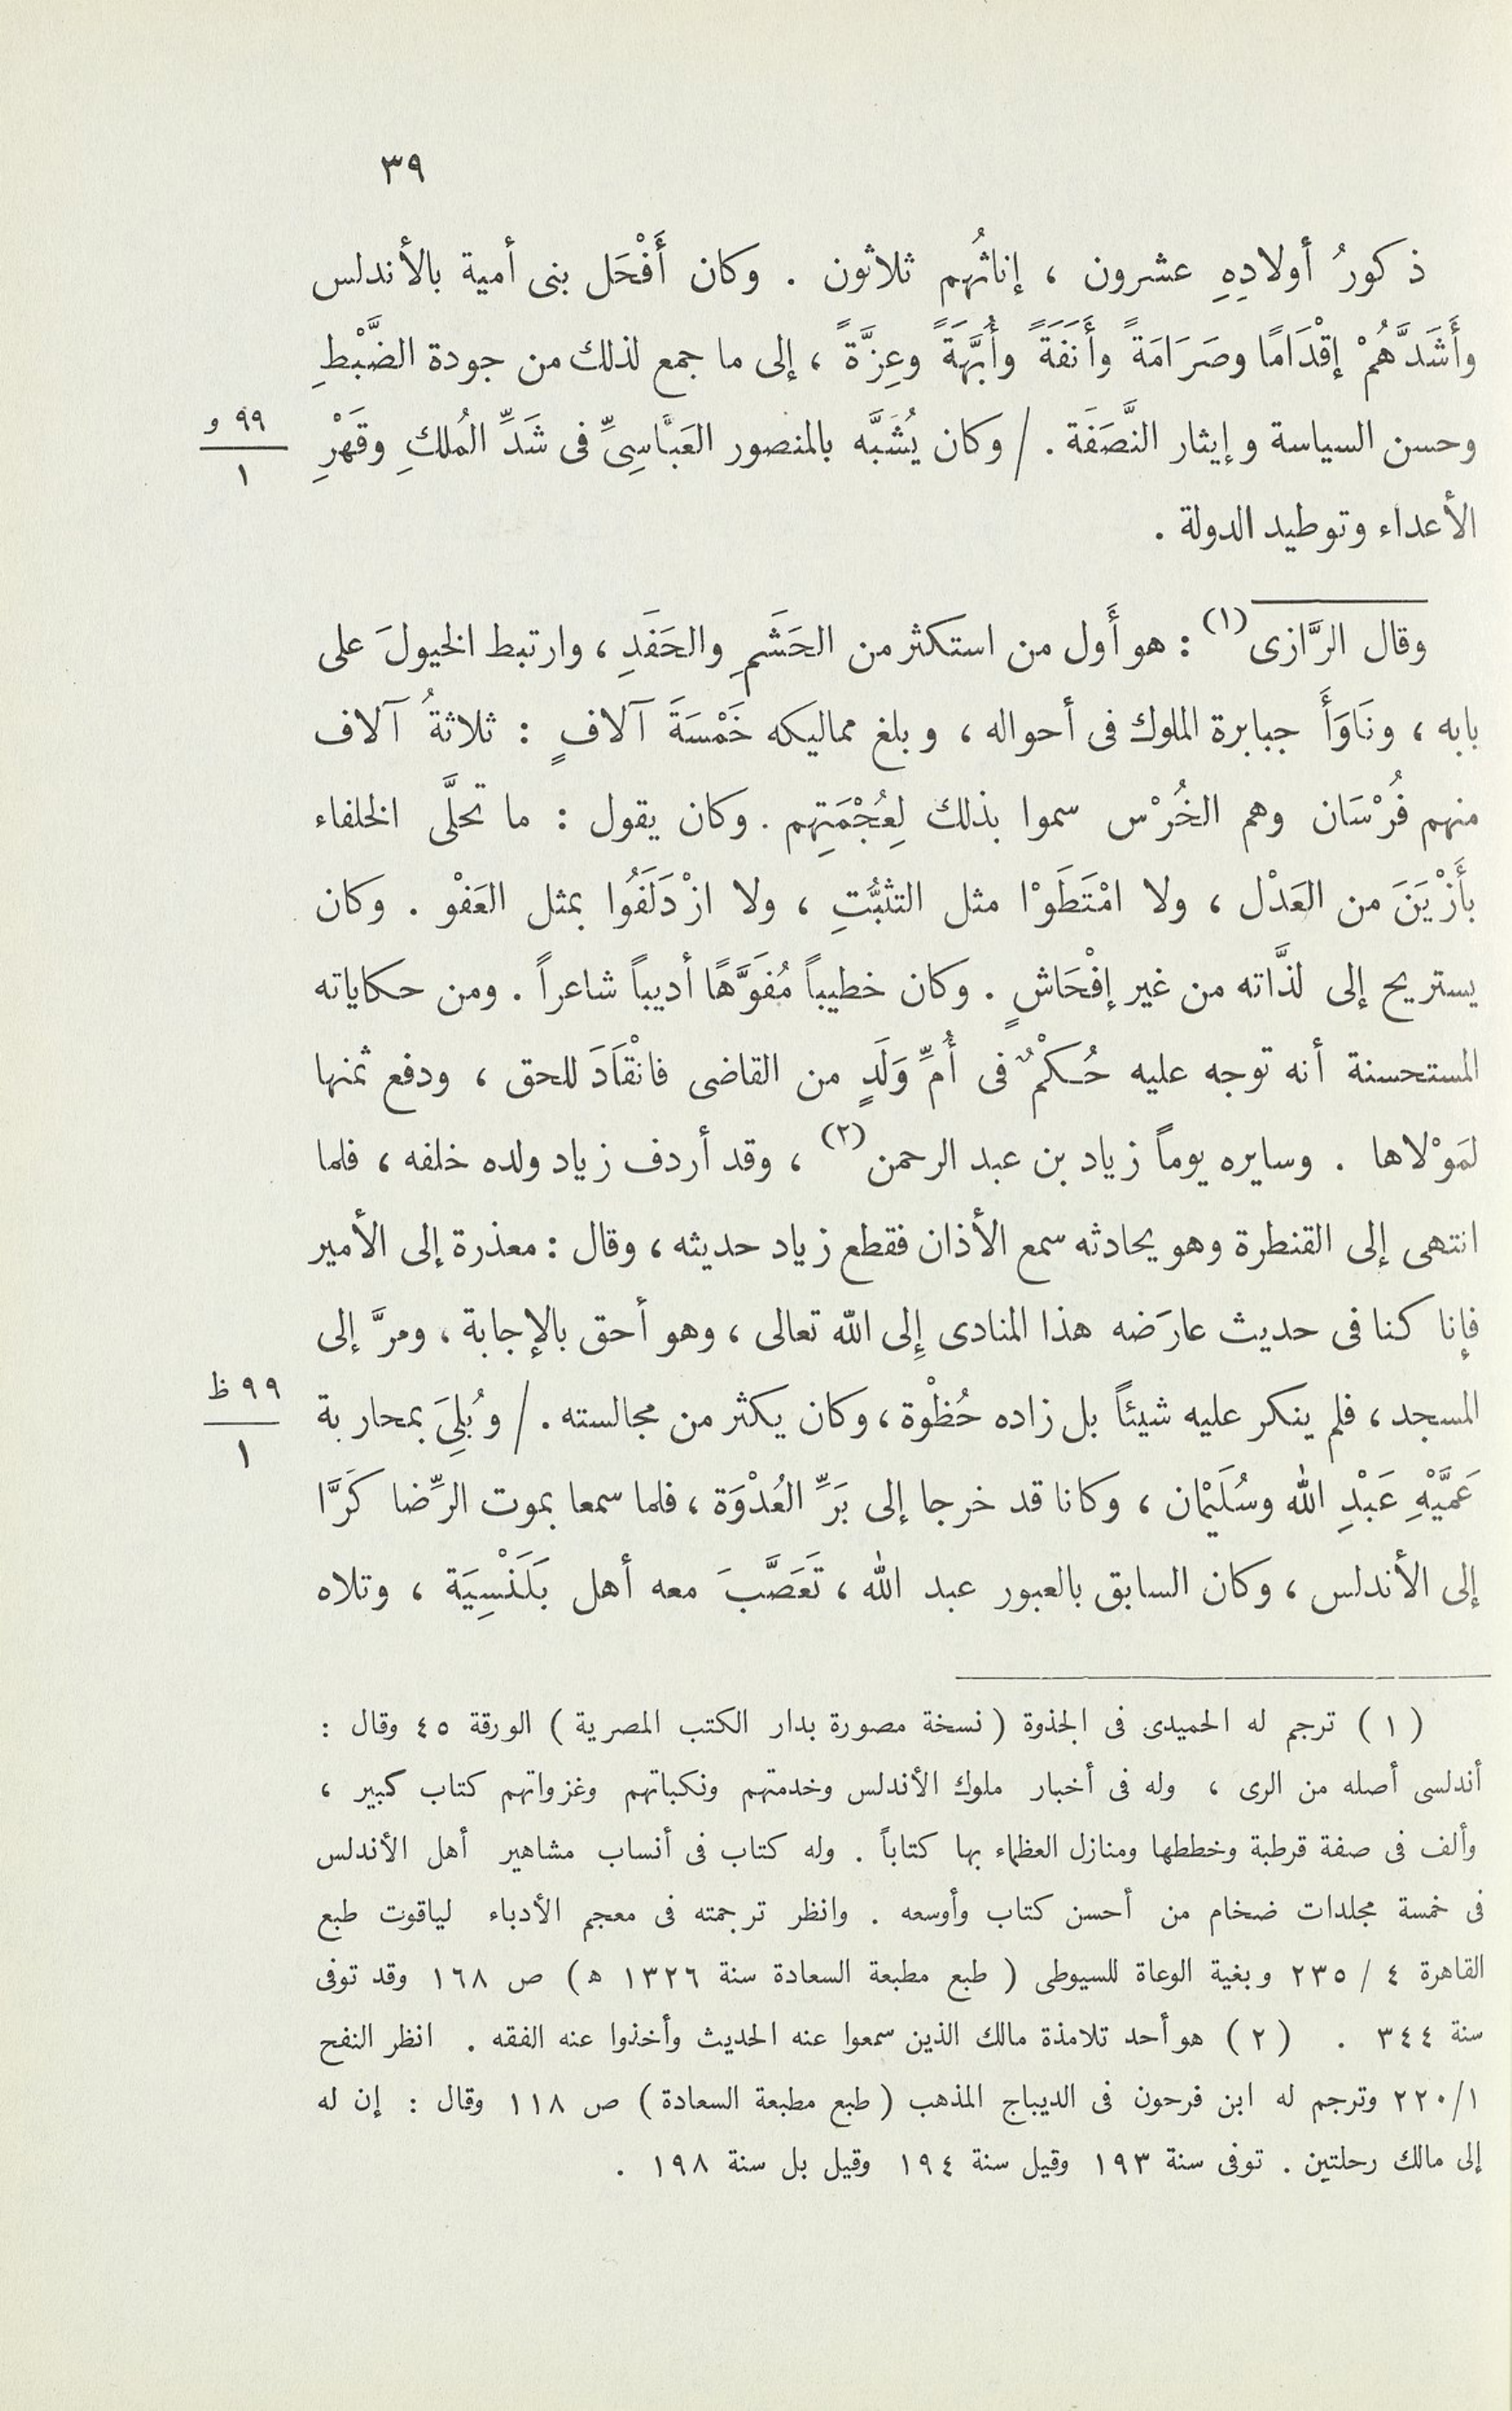 ٣٩
ذكورُ أولادِهِ عشرون ، إناثُهم ثلاثون . وكان أَفْحَل بنى أمية بالأندلس
وأَشَدَّهُمْ إقْدَامًا وصَرَامَةً وأَنَفَةً وأُبَّهَةً وعِزَّةً ، إلى ما جمع لذلك من جودة الضَّبْطِ
وحسن السياسة وإيثار النَّصَفَة . / وكان يُشَبَّه بالمنصور العَبَّاسِىِّ فى شَدِّ المُلكِ وقَهْرِ
٩٩ و
١
الأعداء وتوطيد الدولة .
وقال الرَّازى (١) : هو أَول من استكثر من الحَشَمِ والحَفَدِ ، وارتبط الخيولَ على
بابه ، ونَاوَأَ جبابرة الملوك فى أحواله ، وبلغ مماليكه خَمْسَةَ آلافٍ : ثلاثةُ آلاف
منهم فُرْسَان وهم الخُرْس سموا بذلك لِعُجْمَتِهم . وكان يقول : ما تحلَّى الخلفاء
بأَزْيَنَ من العَدْل ، ولا امْتَطَوْا مثل التثبُّتِ ، ولا ازْدَلَفُوا بمثل العَفْو . وكان
يستريح إلى لذَّاته من غير إفْحَاشٍ . وكان خطيباً مُفَوَّهًا أديباً شاعراً . ومن حكاياته
المستحسنة أنه توجه عليه حُكْمٌ فى أُمِّ وَلَدٍ من القاضى فانْقَادَ للحق ، ودفع ثمنها
لمَوْلاها . وسايره يوماً زياد بن عبد الرحمن (٢) ، وقد أردف زياد ولده خلفه ، فلما
انتهى إلى القنطرة وهو يحادثه سمع الأذان فقطع زياد حديثه ، وقال : معذرة إلى الأمير
فإنا كنا فى حديث عارَضه هذا المنادى إلى الله تعالى ، وهو أحق بالإجابة ، ومرَّ إلى
المسجد ، فلم ينكر عليه شيئاً بل زاده حُظْوة ، وكان يكثر من مجالسته . / وبُلِىَ بمحاربة
٩٩ ظ
١
عَمَّيْهِ عَبْدِ الله وسُلَيْمان ، وكانا قد خرجا إلى بَرِّ العُدْوَة ، فلما سمعا بموت الرِّضا كَرَّا
إلى الأندلس ، وكان السابق بالعبور عبد الله ، تَعَصَّبَ معه أهل بَلَنْسِيَة ، وتلاه
( ١ ) ترجم له الحميدى فى الجذوة ( نسخة مصورة بدار الكتب المصرية ) الورقة ٤٥ وقال :
أندلسى أصله من الرى ، وله فى أخبار ملوك الأندلس وخدمتهم ونكباتهم وغزواتهم كتاب كبير ،
وألف فى صفة قرطبة وخططها ومنازل العظماء بها كتاباً . وله كتاب فى أنساب مشاهير أهل الأندلس
فى خمسة مجلدات ضخام من أحسن كتاب وأوسعه . وانظر ترجمته فى معجم الأدباء لياقوت طبع
القاهرة ٤ / ٢٣٥ وبغية الوعاة للسيوطى ( طبع مطبعة السعادة سنة ١٣٢٦ ه ) ص ١٦٨ وقد توفى
سنة ٣٤٤ . ( ٢ ) هو أحد تلامذة مالك الذين سمعوا عنه الحديث وأخذوا عنه الفقه . انظر النفح
٢٢٠/١ وترجم له ابن فرحون فى الديباج المذهب ( طبع مطبعة السعادة ) ص ١١٨ وقال : إن له
إلى مالك رحلتين . توفى سنة ١٩٣ وقيل سنة ١٩٤ وقيل بل سنة ١٩٨ .